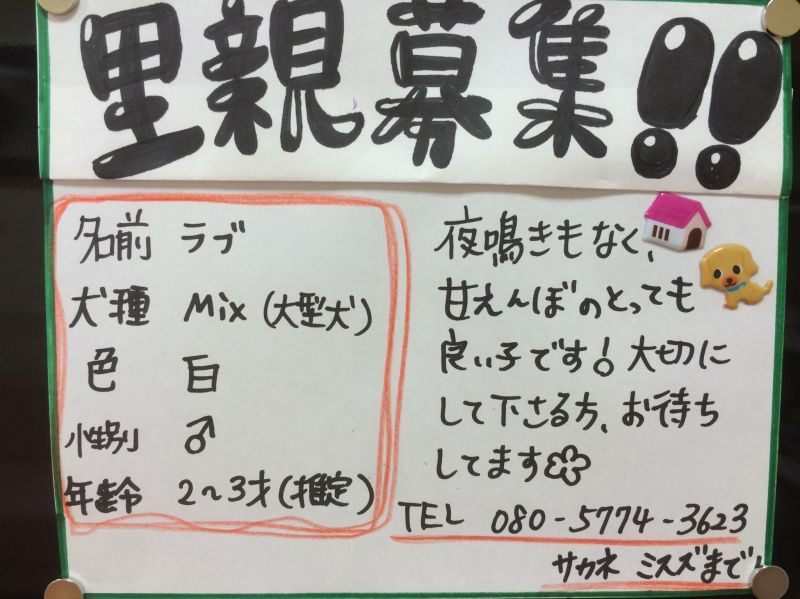 里親募集!!
名前 ラブ
犬種 Mix (大型犬)
色 白
性別 ♂
年齢 2〜3才(推定)
夜鳴きもなく、
甘えんぼのとっても
良い子です!大切に
して下さる方、お待ち
してます
TEL 080-5774-3623
サカネ ミスズまで